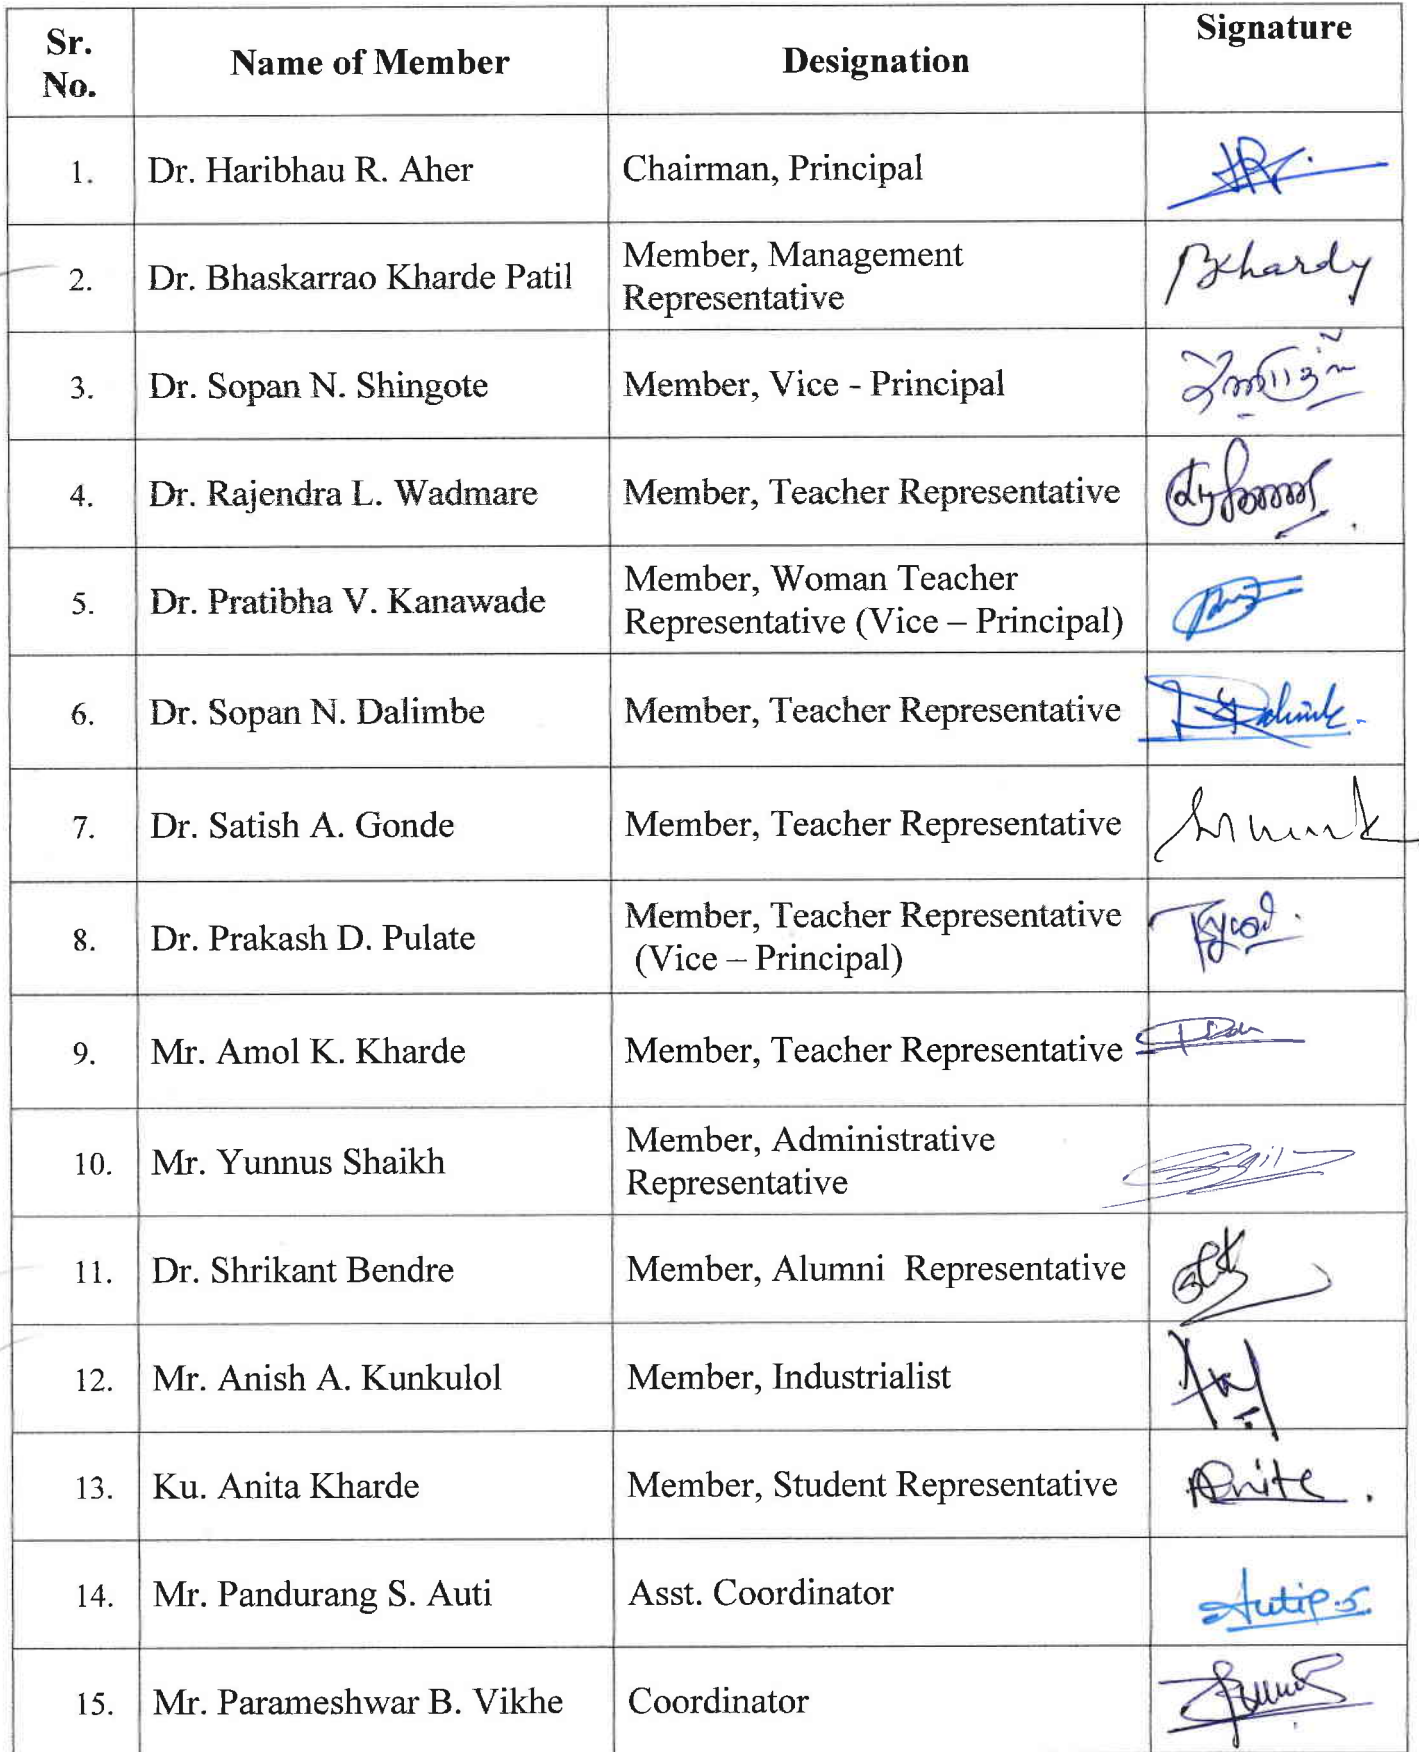 Sr. No. Name of Member Designation Signature
1. Dr. Haribhau R. Aher Chairman, Principal
2. Dr. Bhaskarrao Kharde Patil Member, Management Representative Bkhardy
3. Dr. Sopan N. Shingote Member, Vice - Principal
4. Dr. Rajendra L. Wadmare Member, Teacher Representative
5. Dr. Pratibha V. Kanawade Member, Woman Teacher Representative (Vice – Principal)
6. Dr. Sopan N. Dalimbe Member, Teacher Representative
7. Dr. Satish A. Gonde Member, Teacher Representative
8. Dr. Prakash D. Pulate Member, Teacher Representative (Vice – Principal)
9. Mr. Amol K. Kharde Member, Teacher Representative
10. Mr. Yunnus Shaikh Member, Administrative Representative
11. Dr. Shrikant Bendre Member, Alumni Representative
12. Mr. Anish A. Kunkulol Member, Industrialist
13. Ku. Anita Kharde Member, Student Representative
14. Mr. Pandurang S. Auti Asst. Coordinator Autip.S.
15. Mr. Parameshwar B. Vikhe Coordinator